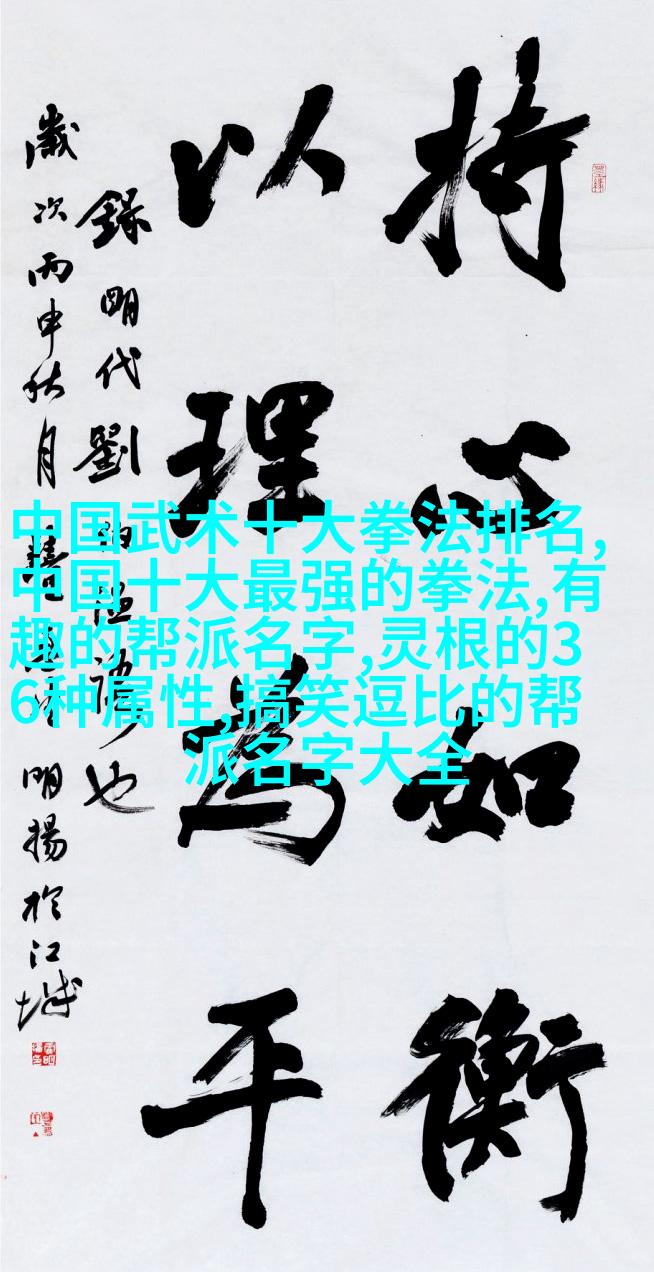 持心如衡
以理為平
錄明代劉伯温語也
歲次丙申秋月 明揚於江城
中国武术十大拳法排名,
中国十大最强的拳法,有
趣的帮派名字,灵根的3
6种属性,搞笑逗比的帮
派名字大全